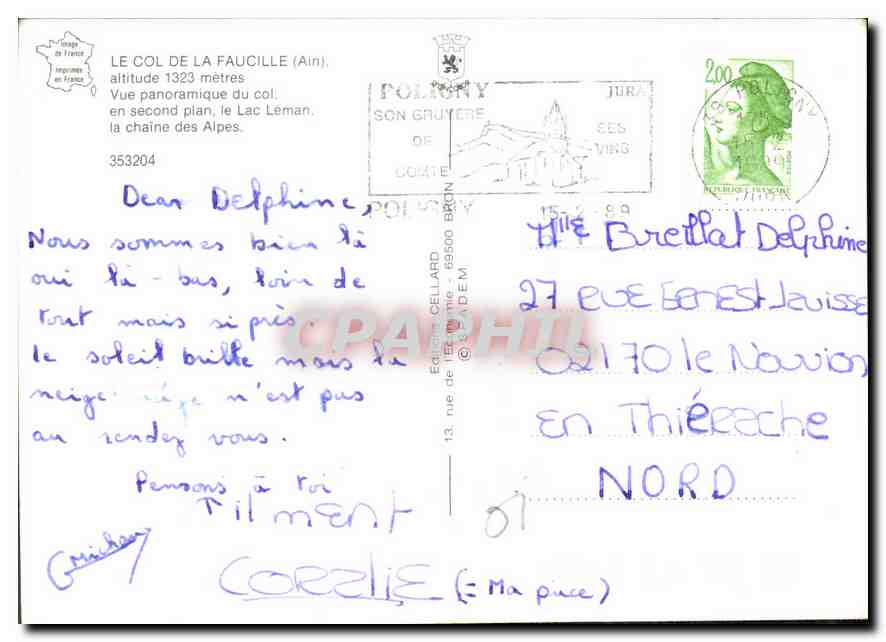 Image
de France
Imprimée
en France
LE COL DE LA FAUCILLE (Ain).
altitude 1323 mètres
Vue panoramique du col,
en second plan, le Lac Léman.
la chaîne des Alpes.
353204
Dear Delphine,
Nous sommes bien là
oui là-bas, loin de
tout mais si près.
le soleil brille mais la
neige n'est pas
au rendez vous.
Pensons à toi
CORALIE (= Ma puce)
Editions CELLARD
13, rue de l'Economie - 69500 BRON
© SPADEM
POLIGNY JURA
SON GRUYERE
DE
COMTE
SES
VINS
POLIGNY 15-2-89
2,00
POSTES
REPUBLIQUE FRANÇAISE
39 POLIGNY
JURA
Mlle Breillat Delphine
27 RUE ERNEST Lavisse
02170 le Nouvion
EN THIÉRACHE
NORD
CPAPHIL